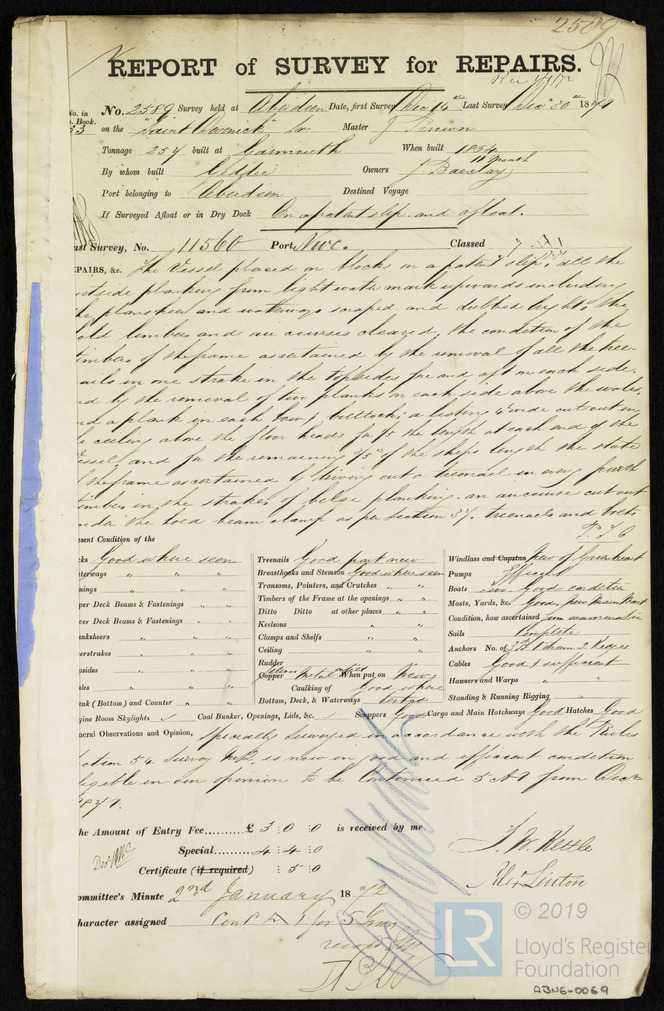 2589
REPORT of SURVEY for REPAIRS.
Rec 1/1/72
No. in
Book.
No. 2589 Survey held at Aberdeen Date, first Survey Dec 14th Last Survey Dec 30th 1871
on the Saint Devenick Sr Master J Brown
Tonnage 257 built at Garmouth When built 1864
By whom built Geddie Owners J. Barclay
Port belonging to Aberdeen Destined Voyage
If Surveyed Afloat or in Dry Dock On a patent slip and afloat.
ast Survey, No. 11560 Port, Nwc. Classed 7 A 1
EPAIRS, &c. The Vessel placed on blocks on a patent slip, all the
tside planking from light water mark upwards including
he plansheer and waterways scraped and dubbed bright, the
old timbers and air courses cleared, the condition of the
timbers of the frame ascertained by the removal of all the tree-
nails in one strake in the topsides fore and aft on each side.
nd by the removal of two planks on each side above the wales,
nd a plank in each bow & buttock; a listing 4 wide cut out in
e ceiling above the floor heads for the length at each end of the
essel, and for the remaining 3/5 of the ships length the state
f the frame ascertained by driving out a treenail in every fourth
timber in the strakes of bilge planking. an air course cut out
under the hold beam clamp as per Section 54. treenails and bolts
P. T. O
esent Condition of the
cks Good where seen
aterways " " "
nings " " "
per Deck Beams & Fastenings " "
wer Deck Beams & Fastenings " "
anksheers " "
perstrakes " "
psides " "
ales " "
ank (Bottom) and Counter " "
gine Room Skylights
Treenails Good part new
Breasthooks and Stemson Good where seen
Transoms, Pointers, and Crutches " "
Timbers of the Frame at the openings " "
Ditto Ditto at other places " "
Keelsons " "
Clamps and Shelfs " "
Ceiling " "
Rudder
Copper Yellow Metal When put on New
Caulking of Good where
Bottom, Deck, & Waterways tested
Coal Bunker, Openings, Lids, &c. Scuppers Good Cargo and Main Hatchways Good Hatches Good
Windlass and Capstan New of Greenheart
Pumps Efficient
Boats Good condition
Masts, Yards, &c Good, New Main Mast
Condition, how ascertained on examination
Sails Complete
Anchors No. of 3 B. 1 Stream 2 Kedges
Cables Good & sufficient
Hawsers and Warps "
Standing & Running Rigging "
neral Observations and Opinion, Specially Surveyed in accordance with the Rules
ction 54 Survey No 2. is now in good and efficient condition
eligible in our opinion to be Continued 5 A 1 from Dec
1871.
he Amount of Entry Fee .......... £ 3 : 0 : 0 is received by me.
Special .......... 4 : 4 : 0
Certificate (if required) : 5 : 0
J. W. Kettle
Alexr Linton
ommittee's Minute 2nd January 1872
haracter assigned Cont A 1 for 5 Years
© 2019
LR
Lloyd's Register
Foundation
ABN6-0069